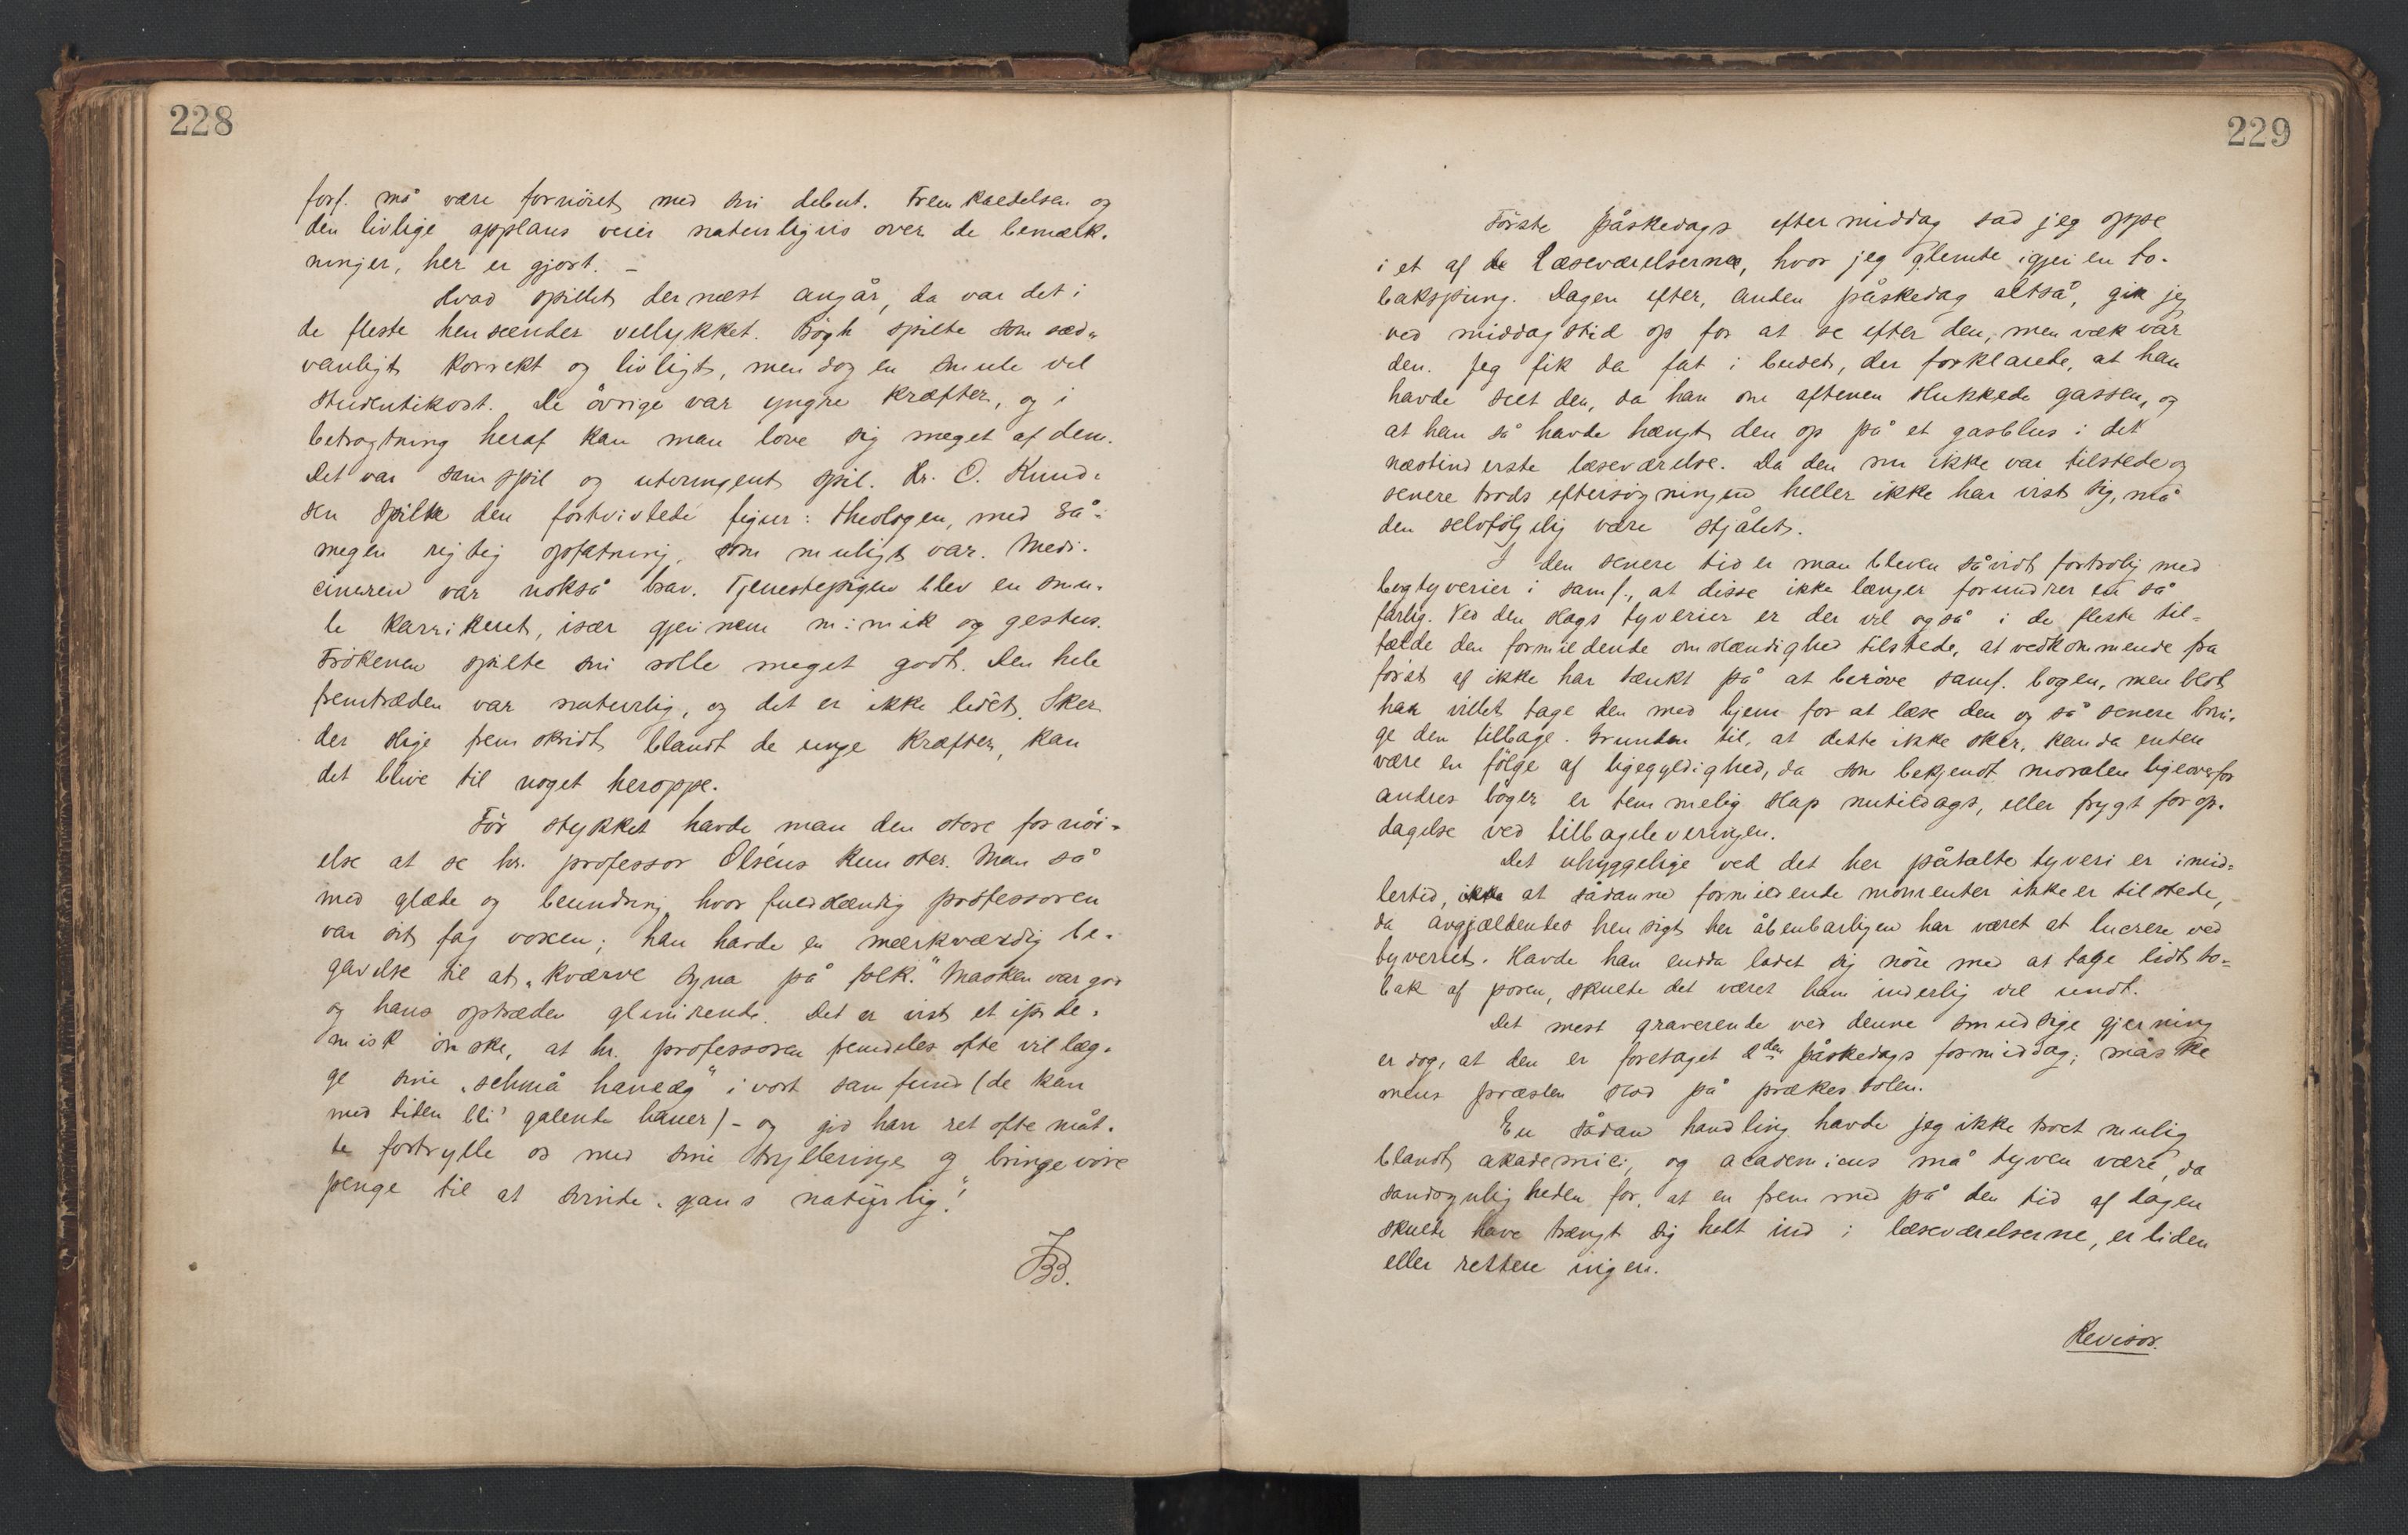 228
forf. må være fornöiet med sin debut. Fremkaldelsen og
den livlige applaus veier naturligvis over de bemærk-
ninger, her er gjort. –
Hvad spillet dernæst angår, da var det i
de fleste henseender vellykket. Bögh spilte som sæd-
vanligt korrekt og livligt, men dog en smule vel
studentikost. De övrige var yngre kræfter, og i
betragtning heraf kan man love sig meget af dem.
Det var samspil og utvungent spil. Hr. O. Knud-
sen spilte den fortvivlede figur: theologen, med så
megen rigtig opfatning, som muligt var. Medi-
cineren var nokså brav. Tjenestepigen blev en smu-
le karrikeret, især gjennem mimik og gestus.
Frökenen spilte sin rolle meget godt. Den hele
fremtræden var naturlig, og det er ikke lidet. Sker
der slige fremskridt blandt de unge kræfter, kan
det blive til noget heroppe.
För stykket havde man den store fornöi-
else at se hr. professor Olséns kunster. Man så
med glæde og beundring hvor fuldstændig professoren
var sit fag voxen; han havde en mærkværdig be-
gavelse til at "kværve syna på folk." Masken var god
og hans optræden glimrende. Det er vist et epide-
misk önske, at hr. professoren fremdeles ofte vil læg-
ge sine "schmå haneæg" i vort samfund (de kan
med tiden bli' galende haner) – og gid han ret ofte måt-
te fortrylle os med sine trylleringe og bringe vore
penge til at svinde "gans natürlig"!
JBB.
229
Förste påskedags eftermiddag sad jeg oppe
i et af de Læseværelserne, hvor jeg glemte igjen en to-
bakspung. Dagen efter, anden påskedag altså, gik jeg
ved middagstid op for at se efter den, men væk var
den. Jeg fik da fat i budet, der forklarede, at han
havde seet den, da han om aftenen slukkede gassen, og
at han så havde hængt den op på et gasblus i det
næstinderste læseværelse. Da den nu ikke var tilstede og
senere trods eftersögningen heller ikke har vist sig, må
den selvfölgelig være stjålet.
I den senere tid er man bleven såvidt fortrolig med
bogtyverier i samf., at disse ikke længer forundrer en så
farlig. Ved den slags tyverier er der vel også i de fleste til-
fælde den formildende omstændighed tilstede, at vedkommende fra
först af ikke har tænkt på at beröve samf. bogen, men blot
har villet tage den med hjem for at læse den og så senere brin-
ge den tilbage. Grunden til, at dette ikke sker, kan da enten
være en fölge af ligegyldighed, da som bekjendt moralen ligeoverfor
andres böger er temmelig slap nutildags, eller frygt for op-
dagelse ved tilbageleveringen.
Det uhyggelige ved det her påtalte tyveri er imid-
lertid, at sådanne formildende momenter ikke er tilstede,
da angjældendes hensigt her åbenbarligen har været at lucrere ved
tyveriet. Havde han endda ladet sig nöie med at tage lidt to-
bak af posen, skulde det været ham inderlig vel undt.
Det mest graverende ved denne smudsige gjerning
er dog, at den er foretaget 2den påskedags formiddag; måske
mens præsten stod på prækestolen.
En sådan handling havde jeg ikke troet mulig
blandt akademici, og academicus må tyven være, da
sandsynligheden for, at en fremmed på den tid af dagen
skulde have trængt sig helt ind i læseværelserne, er liden
eller rettere ingen.
Revisor.